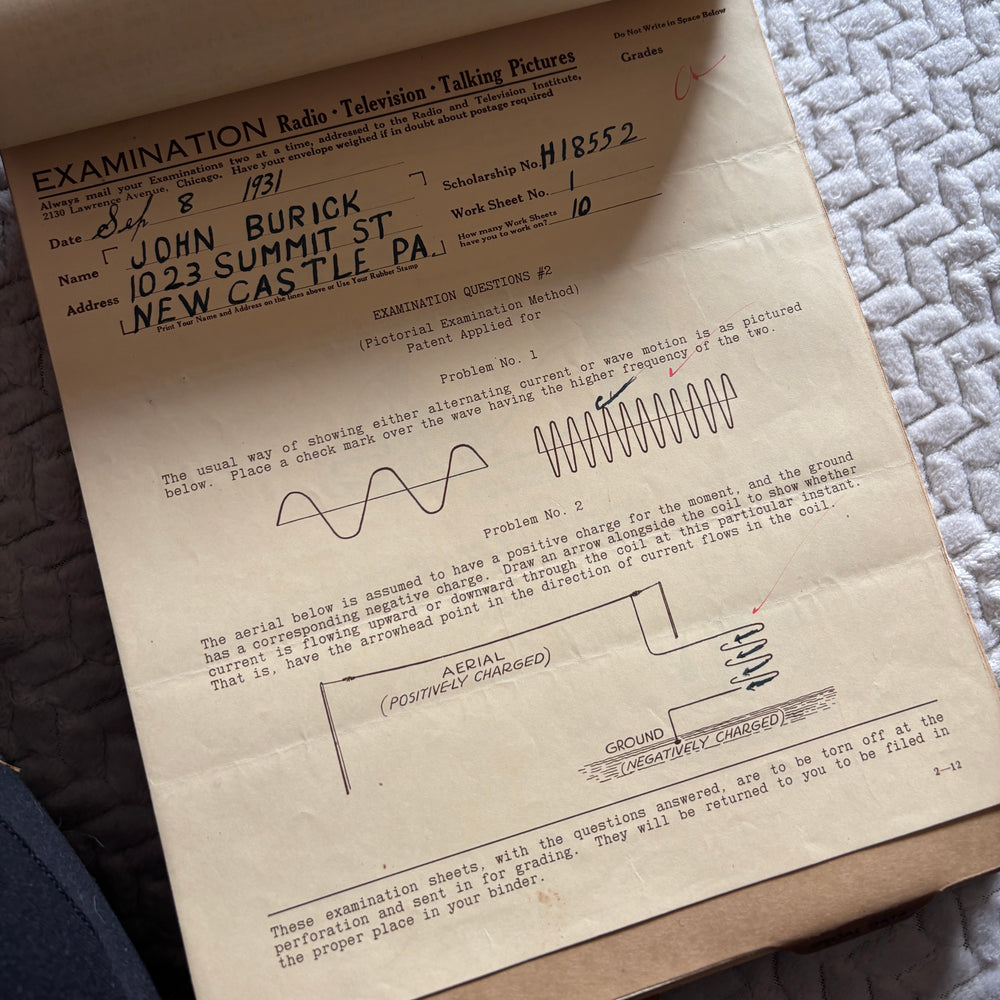 Do Not Write in Space Below
Grades
EXAMINATION Radio · Television · Talking Pictures
Always mail your Examinations two at a time, addressed to the Radio and Television Institute,
2130 Lawrence Avenue, Chicago. Have your envelope weighed if in doubt about postage required
Date Sep 8 1931
Scholarship No. H18552
Name JOHN BURICK
Work Sheet No. 1
Address 1023 SUMMIT ST
How many Work Sheets
have you to work on? 10
NEW CASTLE PA.
Print Your Name and Address on the lines above or Use Your Rubber Stamp
EXAMINATION QUESTIONS #2
(Pictorial Examination Method)
Patent Applied for
Problem No. 1
The usual way of showing either alternating current or wave motion is as pictured
below. Place a check mark over the wave having the higher frequency of the two.
Problem No. 2
The aerial below is assumed to have a positive charge for the moment, and the ground
has a corresponding negative charge. Draw an arrow alongside the coil to show whether
current is flowing upward or downward through the coil at this particular instant.
That is, have the arrowhead point in the direction of current flows in the coil.
AERIAL
(POSITIVELY CHARGED)
GROUND
(NEGATIVELY CHARGED)
These examination sheets, with the questions answered, are to be torn off at the
perforation and sent in for grading. They will be returned to you to be filed in
the proper place in your binder.
2—12